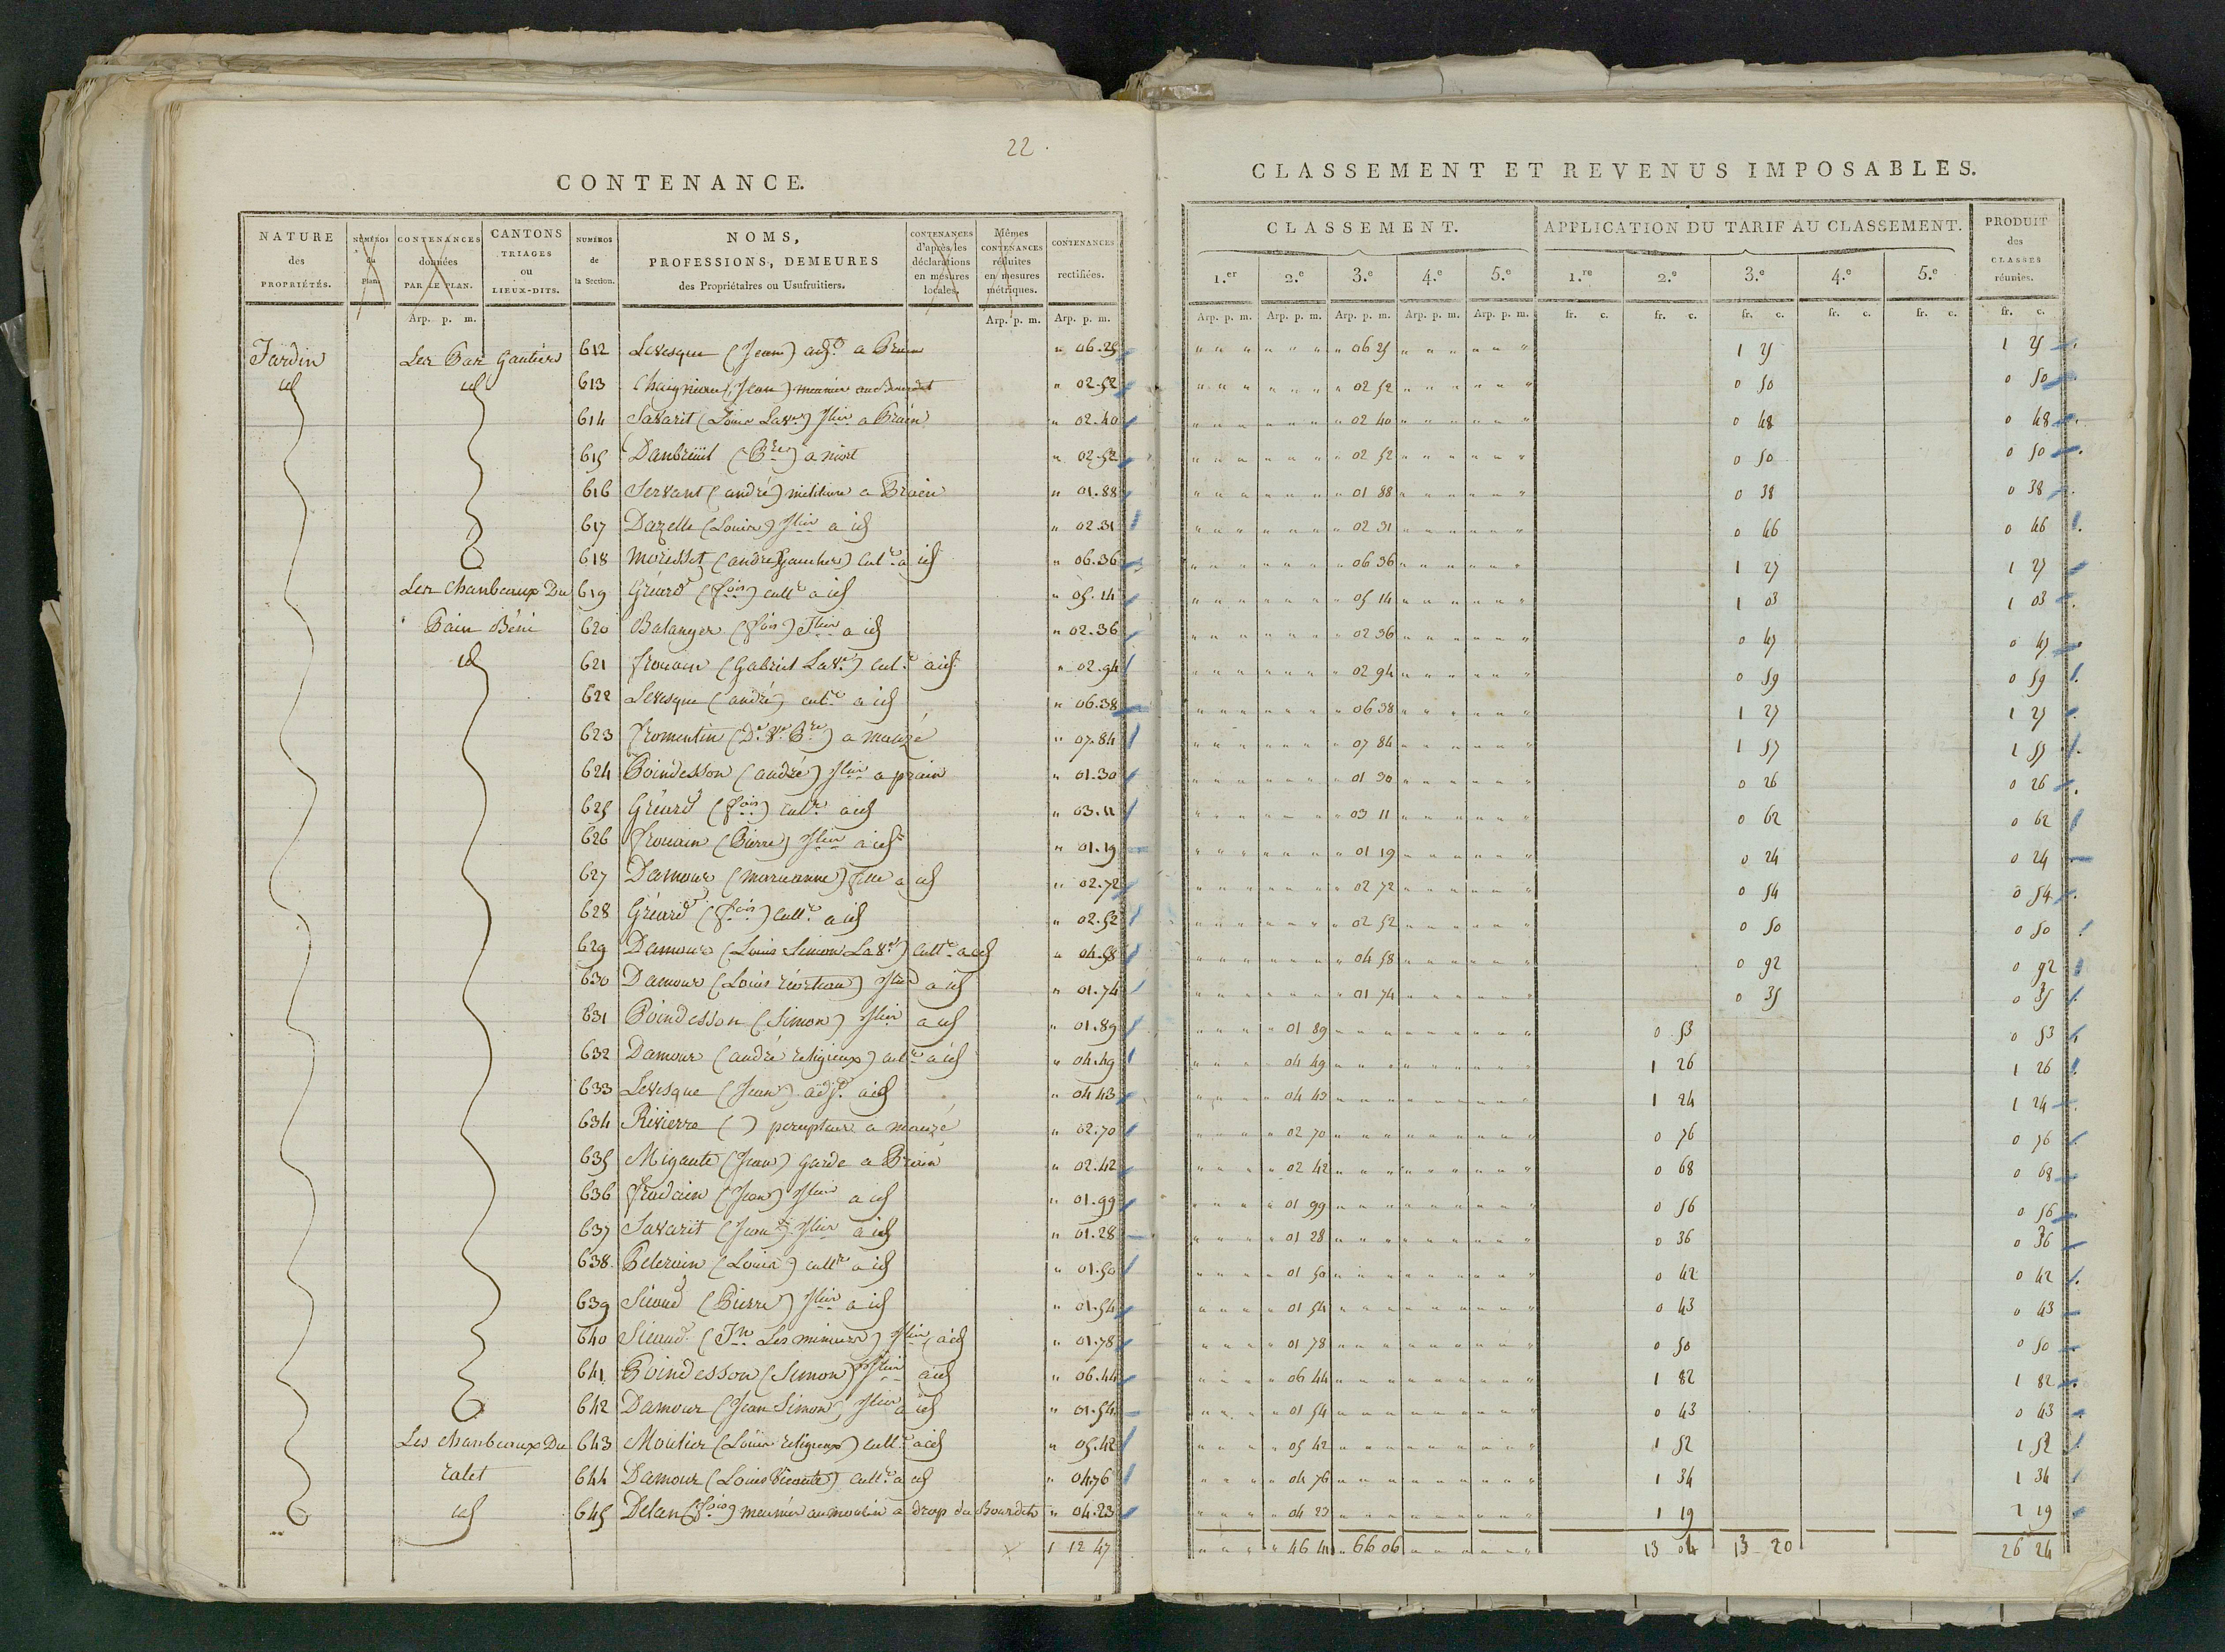 22.
CONTENANCE.
NATURE des PROPRIÉTÉS. NUMÉROS du Plan. CONTENANCES données PAR LE PLAN. CANTONS TRIAGES ou LIEUX-DITS. NUMÉROS de la Section. NOMS, PROFESSIONS, DEMEURES des Propriétaires ou Usufruitiers. CONTENANCES d'après les déclarations en mesures locales. Mêmes CONTENANCES réduites en mesures métriques. CONTENANCES rectifiées.
Arp. p. m. Arp. p. m. Arp. p. m.
Jardin Les Gautiers 612 Levesque (Jean) adj.t a " 06.25
id id 613 (Jean) meunier au Bourdet " 02.52
614 Savarit (Louis Lax.) Jlier a Brain " 02.40
615 Danbreuil a niort " 02.52
616 Servant (andré) a Brain " 01.88
617 Dazelle (Louis) Jlier a id " 02.31
618 Morisset (andre Gaucher) cult.r a id " 06.36
Les Chanbeaux Du 619 Gréard (fois) cultr a id " 05.14
Pain Béni 620 Balanger (fois) Jlier a id " 02.36
id 621 frouain (Gabriel Lax.) cult.r a id " 02.94
622 Levesque (andré) cult.r a id " 06.38
623 fromentin (De Ve) a mauzé " 07.84
624 Poindesson (andré) Jlier a prain " 01.30
625 Gréard (fois) cult.r a id " 03.11
626 frouain (Pierre) Jlier a id " 01.19
627 Damour (marianne) flle a id " 02.72
628 Gréard (fois) cult.r a id " 02.52
629 Damour (Louis Simon Lax.) cult.r a id " 04.58
630 Damour (Louis) Jlier a id " 01.74
631 Poindesson (Simon) Jlier a id " 01.89
632 Damour (andré religieux) cult.r a id " 04.49
633 Levesque (Jean) adj.t a id " 04 43
634 Rivierre ( ) percepteur a mauzé " 02.70
635 Migault (Jean) Garde a Brain " 02.42
636 (Jean) Jlier a id " 01.99
637 Savarit (Jean) Jlier a id " 01.28
638. Pelerin (Louis) cultr a id " 01.50
639 Sicaud (Pierre) Jlier a id " 01.54
640 Sicaud (Jn Les mineurs) Jlier a id " 01.78
641 Poindesson (Simon) Jlier a id " 06.44
642 Damour (Jean Simon) Jlier a id " 01.54
Les chanbeaux Du 643 Moulier (Louis religieux) cultr a id " 05.42
ralet 644 Damour (Louis) cultr a id " 04.76
id 645 Delan (fois) meunier au moulin a drap du Bourdet " 04.23
1 12 47
CLASSEMENT ET REVENUS IMPOSABLES.
CLASSEMENT. APPLICATION DU TARIF AU CLASSEMENT. PRODUIT des CLASSES réunies.
1.er 2.e 3.e 4.e 5.e 1.re 2.e 3.e 4.e 5.e
Arp. p. m. Arp. p. m. Arp. p. m. Arp. p. m. Arp. p. m. fr. c. fr. c. fr. c. fr. c. fr. c. fr. c.
06 25 1 25 1 25
02 52 0 50 0 50
02 40 0 48 0 48
02 52 0 50 0 50
01 88 0 38 0 38
02 31 0 46 0 46
06 36 1 27 1 27
05 14 1 03 1 03
02 36 0 47 0 47
02 94 0 59 0 59
06 38 1 27 1 27
07 84 1 57 1 57
01 30 0 26 0 26
03 11 0 62 0 62
01 19 0 24 0 24
02 72 0 54 0 54
02 52 0 50 0 50
04 58 0 92 0 92
01 74 0 35 0 35
01 89 0 53 0 53
04 49 1 26 1 26
04 43 1 24 1 24
02 70 0 76 0 76
02 42 0 68 0 68
01 99 0 56 0 56
01 28 0 36 0 36
01 50 0 42 0 42
01 54 0 43 0 43
01 78 0 50 0 50
06 44 1 82 1 82
01 54 0 43 0 43
05 42 1 52 1 52
04 76 1 34 1 34
04 23 1 19 1 19
46 41 66 06 13 04 13 20 26 24